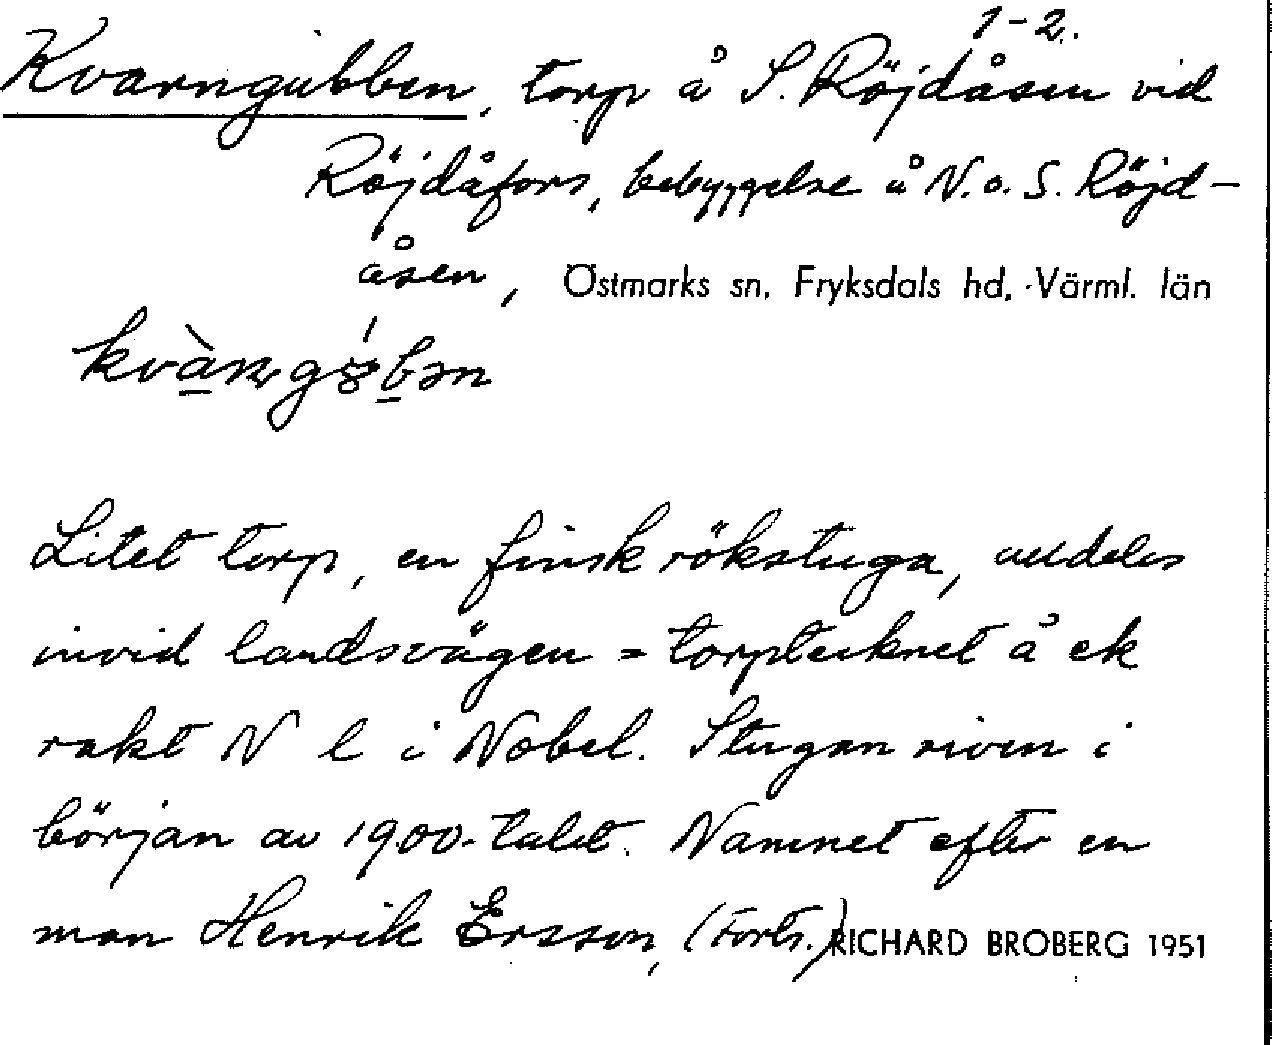 1-2.
Kvarngubben, torp å S. Röjdåsen vid
Röjdåfors, bebyggelse å N. o. S. Röjd-
åsen, Östmarks sn, Fryksdals hd, Värml. län
Litet torp, en finsk rökstuga, alldeles
invid landsvägen = torptecknet å ek
rakt N l i Nobel. Stugan riven i
början av 1900-talet. Namnet efter en
man Henrik Ersson, (Forts.) RICHARD BROBERG 1951